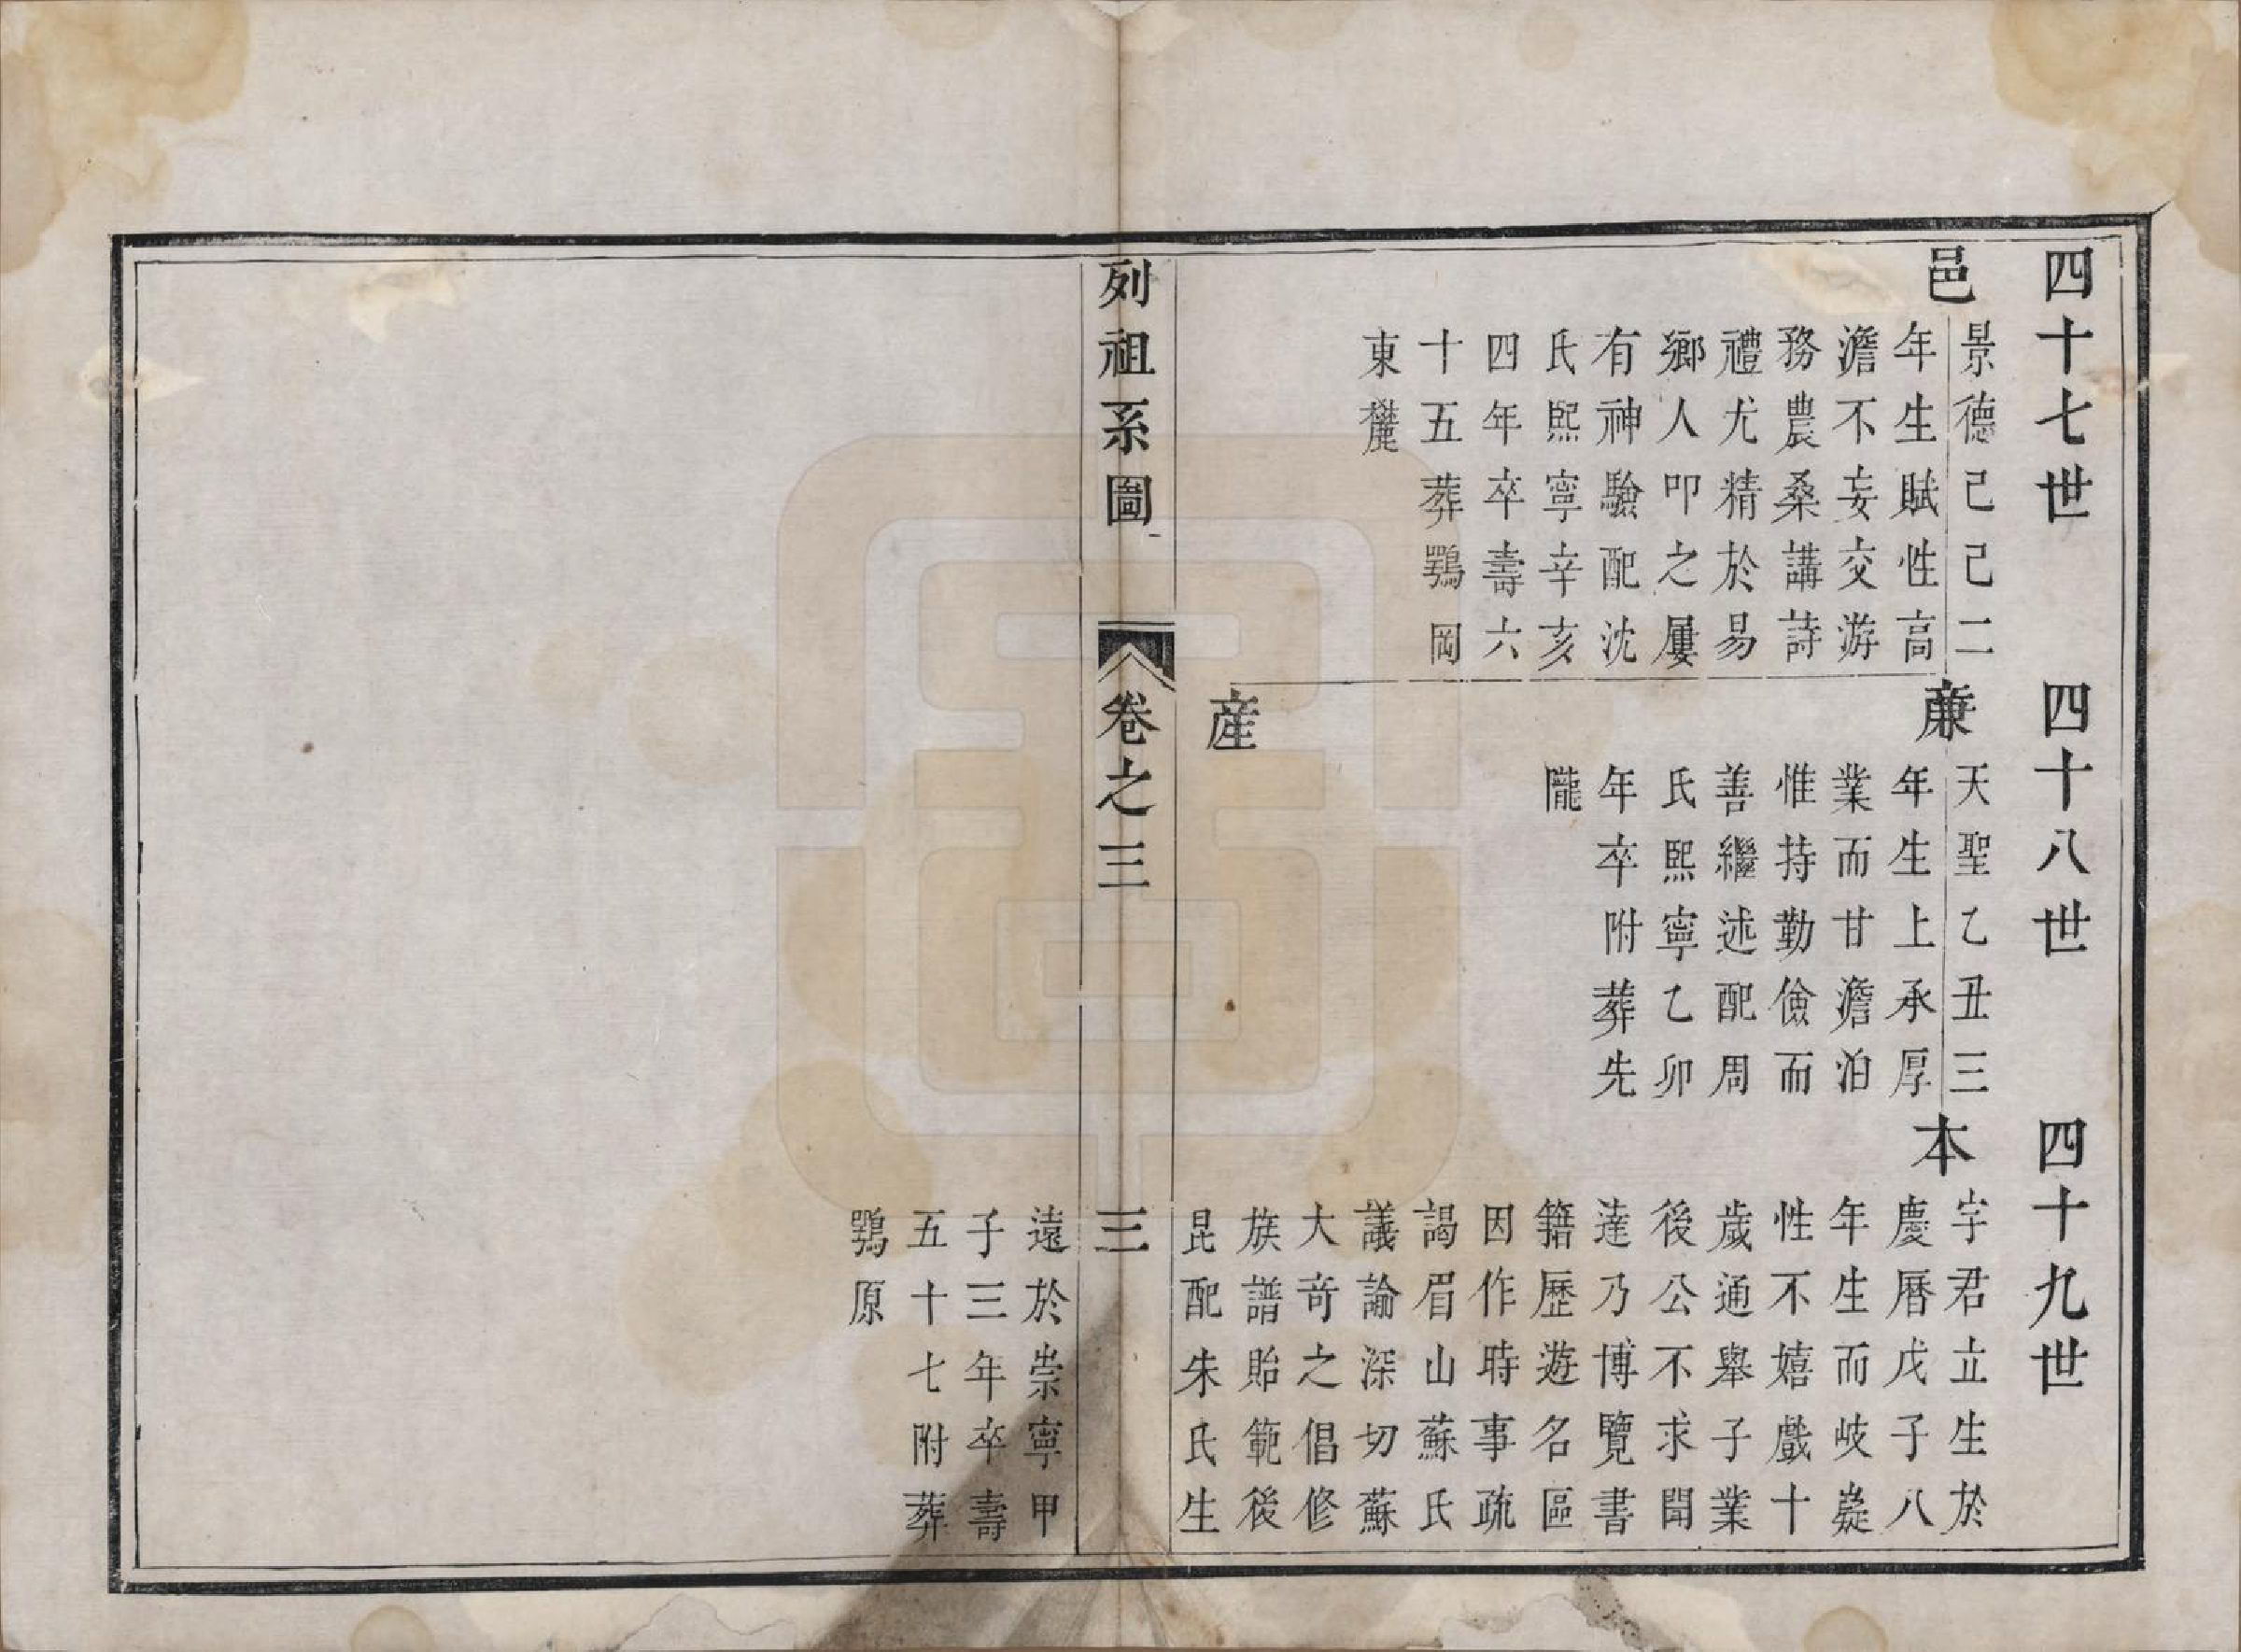 四十七世
四十八世
四十九世
邑
景德己己二
年生賦性高
澹不妄交游
務農桑講詩
禮尤精於易
鄉人叩之屢
有神驗配沈
氏熙寧辛亥
四年卒壽六
十五葬鶚岡
東麓
天聖乙丑三
年生上承厚
業而甘澹泊
惟持勤儉而
善繼述配周
氏熙寧乙卯
年卒附葬先
隴
產
本
字君立生於
慶曆戊子八
年生而岐嶷
性不嬉戲十
歲通舉子業
後公不求聞
達乃博覽書
籍歷遊名區
因作時事疏
謁眉山蘇氏
議論深切蘇
大奇之倡修
族譜貽範後
昆配朱氏生
列祖系圖
卷之三
三
遠於崇寧甲
子三年卒壽
五十七附葬
鶚原